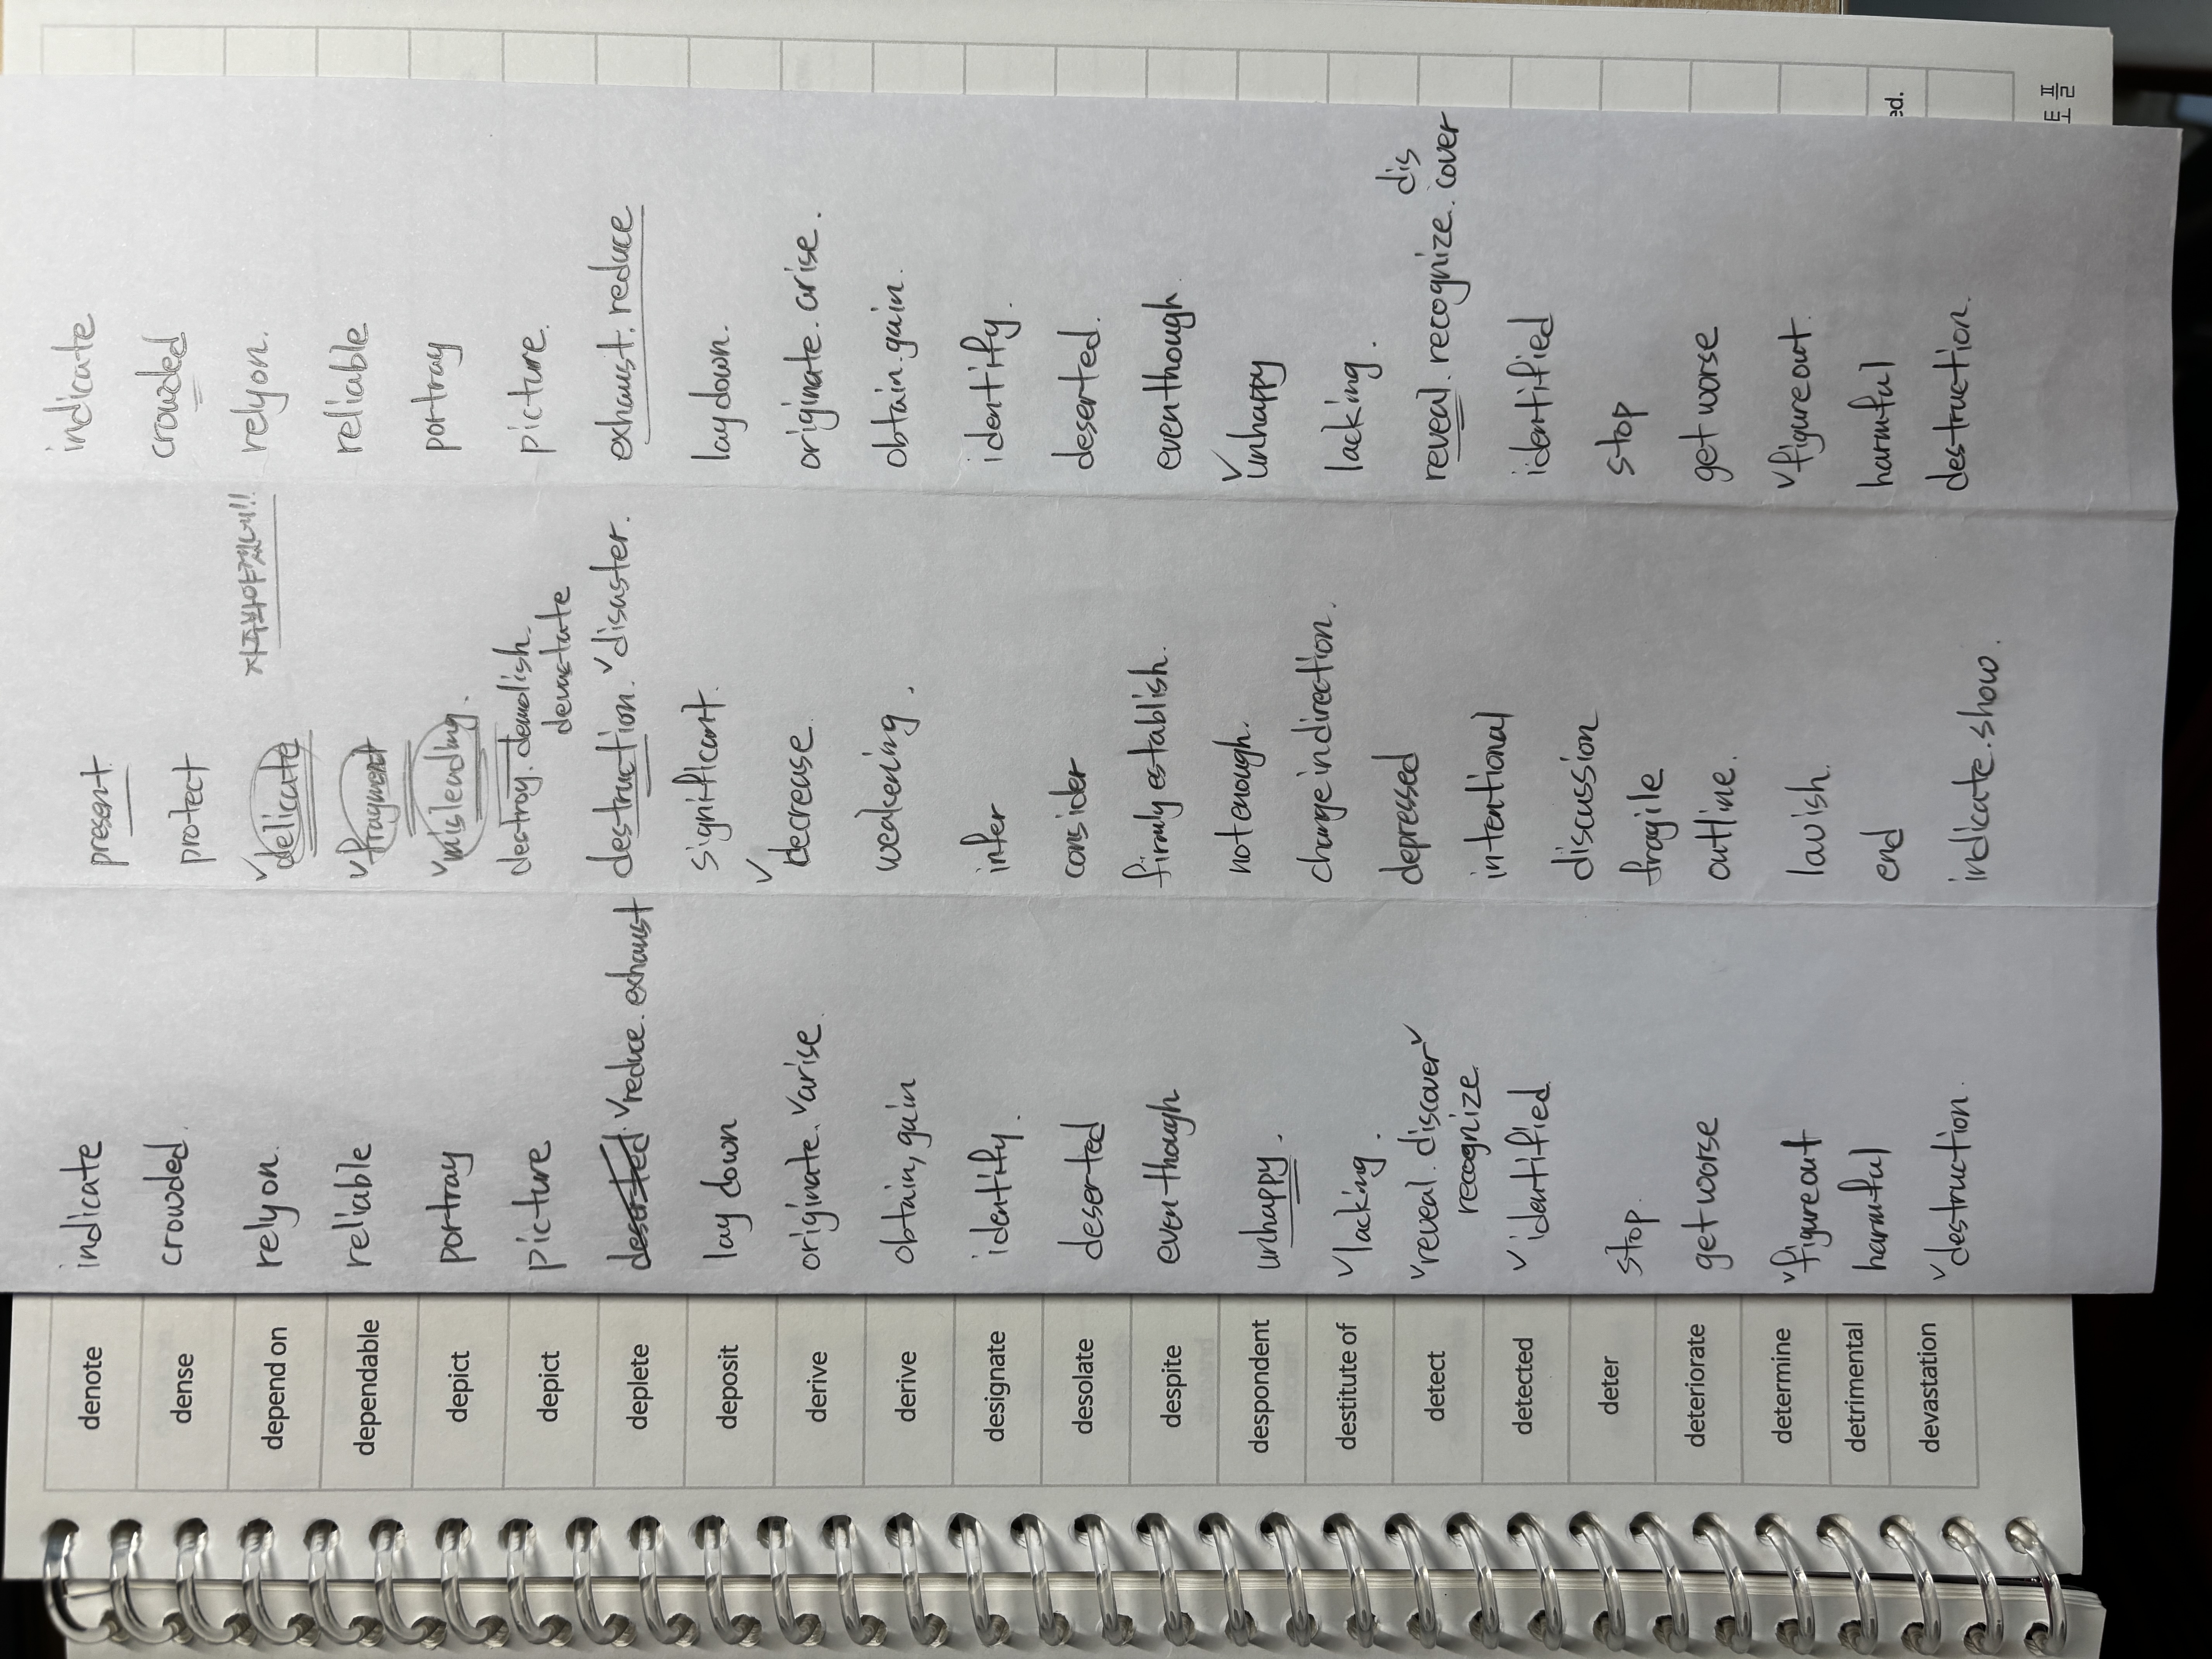 denote
dense
depend on
dependable
depict
depict
deplete
deposit
derive
derive
designate
desolate
despite
despondent
destitute of
detect
detected
deter
deteriorate
determine
detrimental
devastation
indicate
crowded.
rely on.
reliable
portray
picture
✓reduce. exhaust
lay down
originate. ✓arise.
obtain, gain
identify.
deserted
even though
unhappy.
✓lacking.
✓reveal. discover✓
recognize.
✓identified.
stop.
get worse
✓figure out
harmful
✓destruction.
present.
protect
자주봐야겠네!!
✓delicate
✓fragment
✓misleading.
destroy. demolish.
devastate
destruction. ✓disaster.
significant.
✓decrease.
weakening.
infer
consider
firmly establish.
not enough.
change in direction.
depressed
intentional
discussion
fragile
outline.
lavish.
end
indicate. show.
indicate
crowded
rely on.
reliable
portray
picture.
exhaust. reduce
lay down.
originate. arise.
obtain. gain.
identify.
deserted.
even though
✓unhappy
lacking.
dis
reveal. recognize. cover
identified
stop
get worse
✓figure out.
harmful
destruction.
ed.
토플